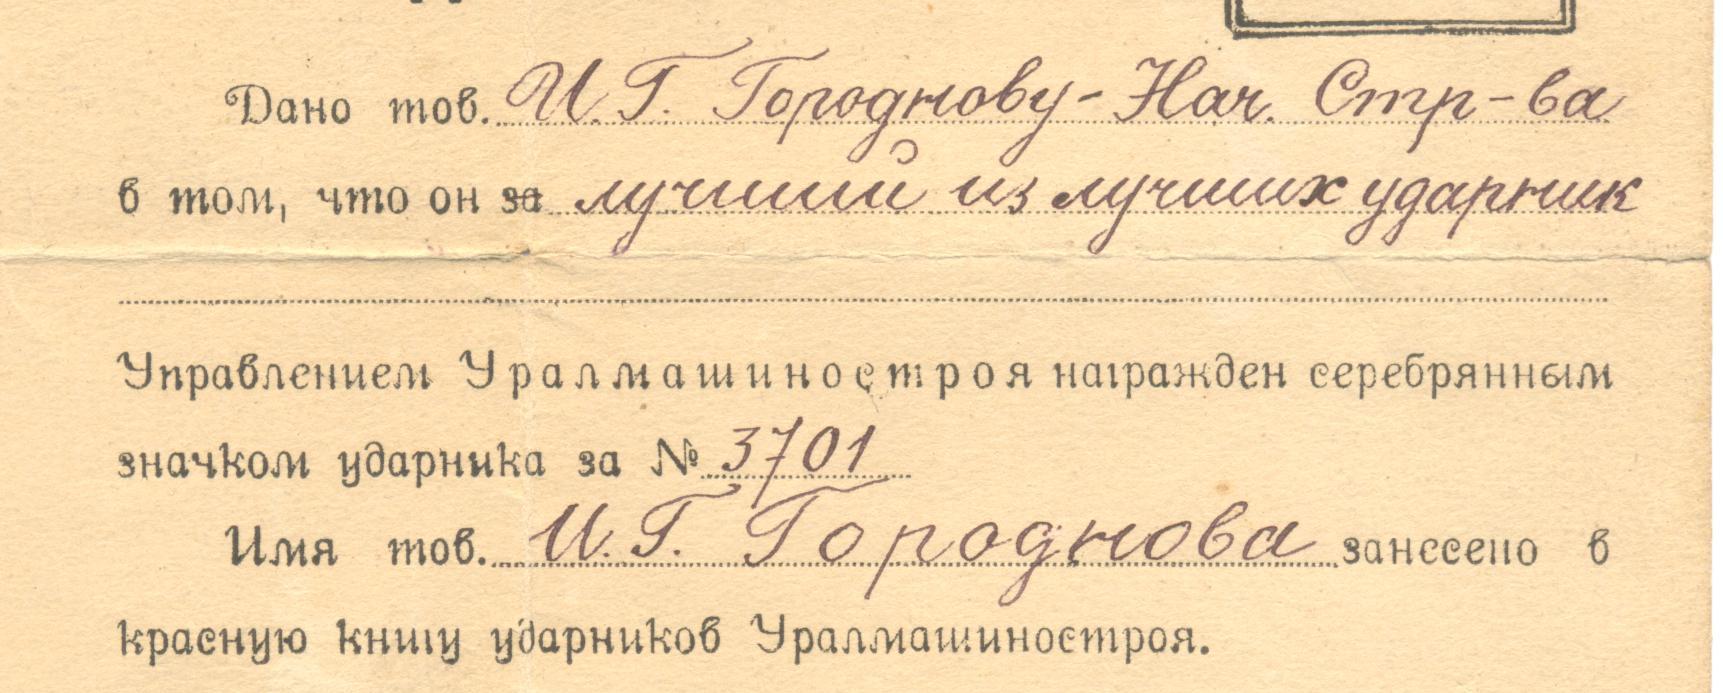 Дано тов. И. Г. Городнову - Нач. Стр-ва
в том, что он за лучший из лучших ударник
Управлением Уралмашиностроя награжден серебрянным
значком ударника за № 3701
Имя тов. И. Г. Городнова занесено в
красную книгу ударников Уралмашиностроя.